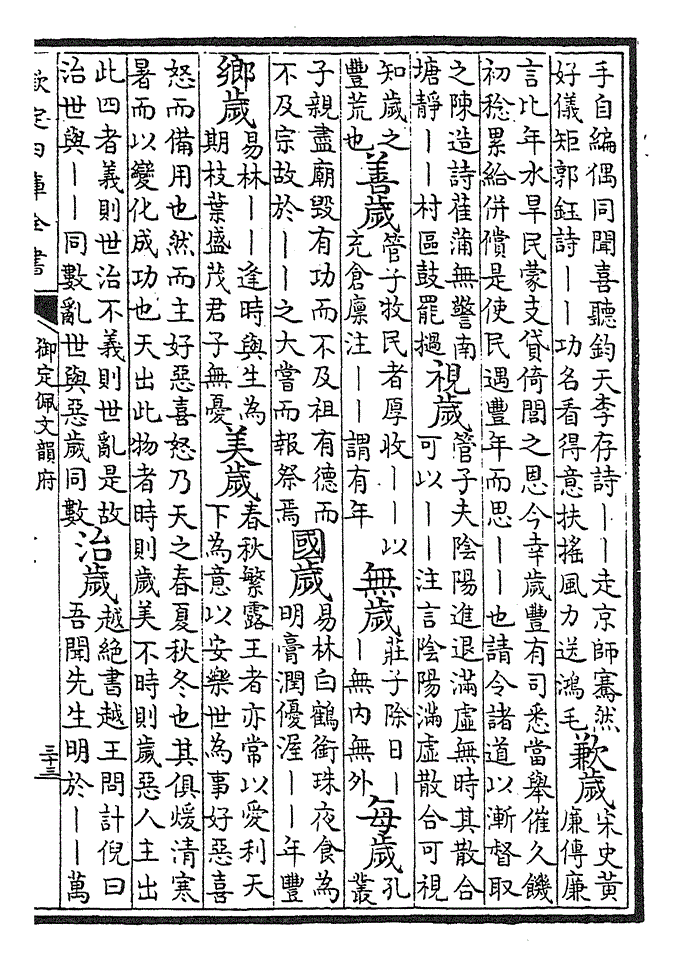 手自編偶同聞喜聽鈞天李存詩——走京師騫然
好儀矩郭鈺詩——功名看得意扶搖風力送鴻毛
歉歲
宋史黃
廉傳廉
言比年水旱民蒙支貸倚閣之恩今幸歲豐有司悉當舉催久饑
初稔累給併償是使民遇豐年而思——也請令諸道以漸督取
之陳造詩萑蒲無警南
塘靜——村區鼓罷撾
視歲
管子夫陰陽進退滿虛無時其散合
可以——注言陰陽滿虛散合可視
知歲之
豐荒也
善歲
管子牧民者厚收——以
充倉廩注——謂有年
無歲
莊子除日—
—無內無外
每歲
孔
叢
子親盡廟毀有功而不及祖有德而
不及宗故於——之大嘗而報祭焉
國歲
易林白鶴銜珠夜食為
明膏潤優渥——年豐
鄉歲
易林——逢時與生為
期枝葉盛茂君子無憂
美歲
春秋繁露王者亦常以愛利天
下為意以安樂世為事好惡喜
怒而備用也然而主好惡喜怒乃天之春夏秋冬也其俱煖清寒
暑而以變化成功也天出此物者時則歲美不時則歲惡人主出
此四者義則世治不義則世亂是故
治世與——同數亂世與惡歲同數
治歲
越絕書越王問計倪曰
吾聞先生明於——萬
欽定四庫全書
御定佩文韻府
三十三